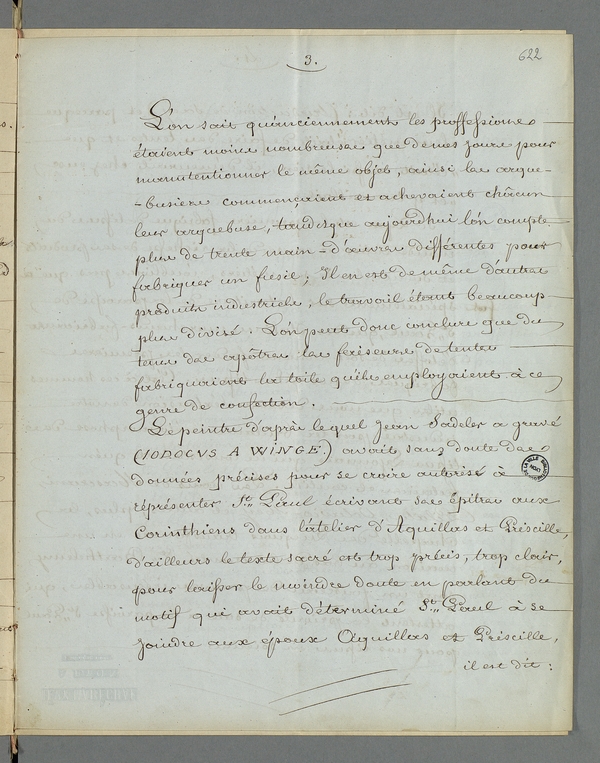 3.
622
L'on sait qu'anciennement les proffessions
étaient moins nombreuses que de nos jours pour
manutentionner le même objet, ainsi les arque-
-busiers commençaient et achevaient châcun
leur arquebuse, tandisque aujourdhui l'on compte
plus de trente main-d'œuvres différentes pour
fabriquer un fusil; Il en est de même d'autres
produits industriels, le travail étant beaucoup
plus divisé. L'on peut donc conclure que du
tems des apôtres les faiseurs de tentes
fabriquaient la toile qu'ils employaient à ce
genre de confection.
Le peintre d'après lequel Jean Sadeler a gravé
(IODOCVS A WINGE.) avait sans doute des
données précises pour se croire autorisé à
réprésenter St. Paul écrivant ses épitres aux
Corinthiens dans l'atelier d'Aquillas et Priscille,
d'ailleurs le texte sacré est trop précis, trop clair,
pour laisser le moindre doute en parlant du
motif qui avait déterminé St. Paul à se
joindre aux époux Aquillas et Priscille,
il est dit: